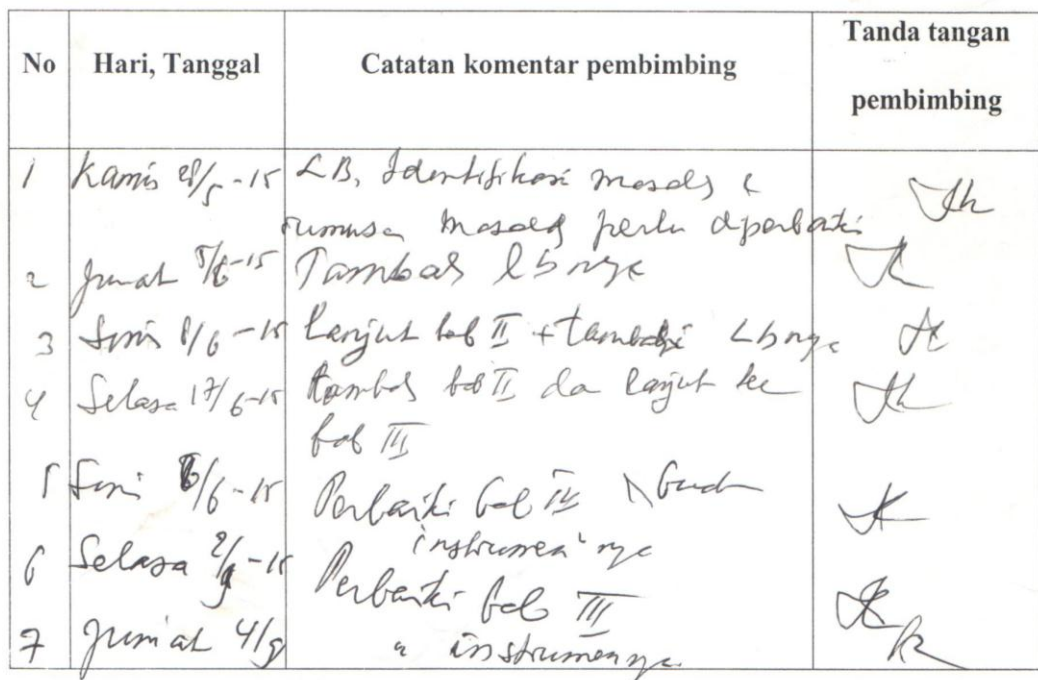 No Hari, Tanggal Catatan komentar pembimbing Tanda tangan pembimbing
1 Kamis 28/5-15 LB, Identifikasi masalah &
rumusan masalah perlu diperbaiki
2 Jumat 5/6-15 Tambah lbnya
3 Senin 8/6-15 Lanjut bab II + tambahi Lbnya
4 Selasa 17/6-15 tambah bab II da lanjut ke
bab III
5 Senin /6-15 Perbaiki bab
instrumen'nya
6 Selasa /9-15 Perbaiki bab III
7 Jum'at 4/9 instrumennya